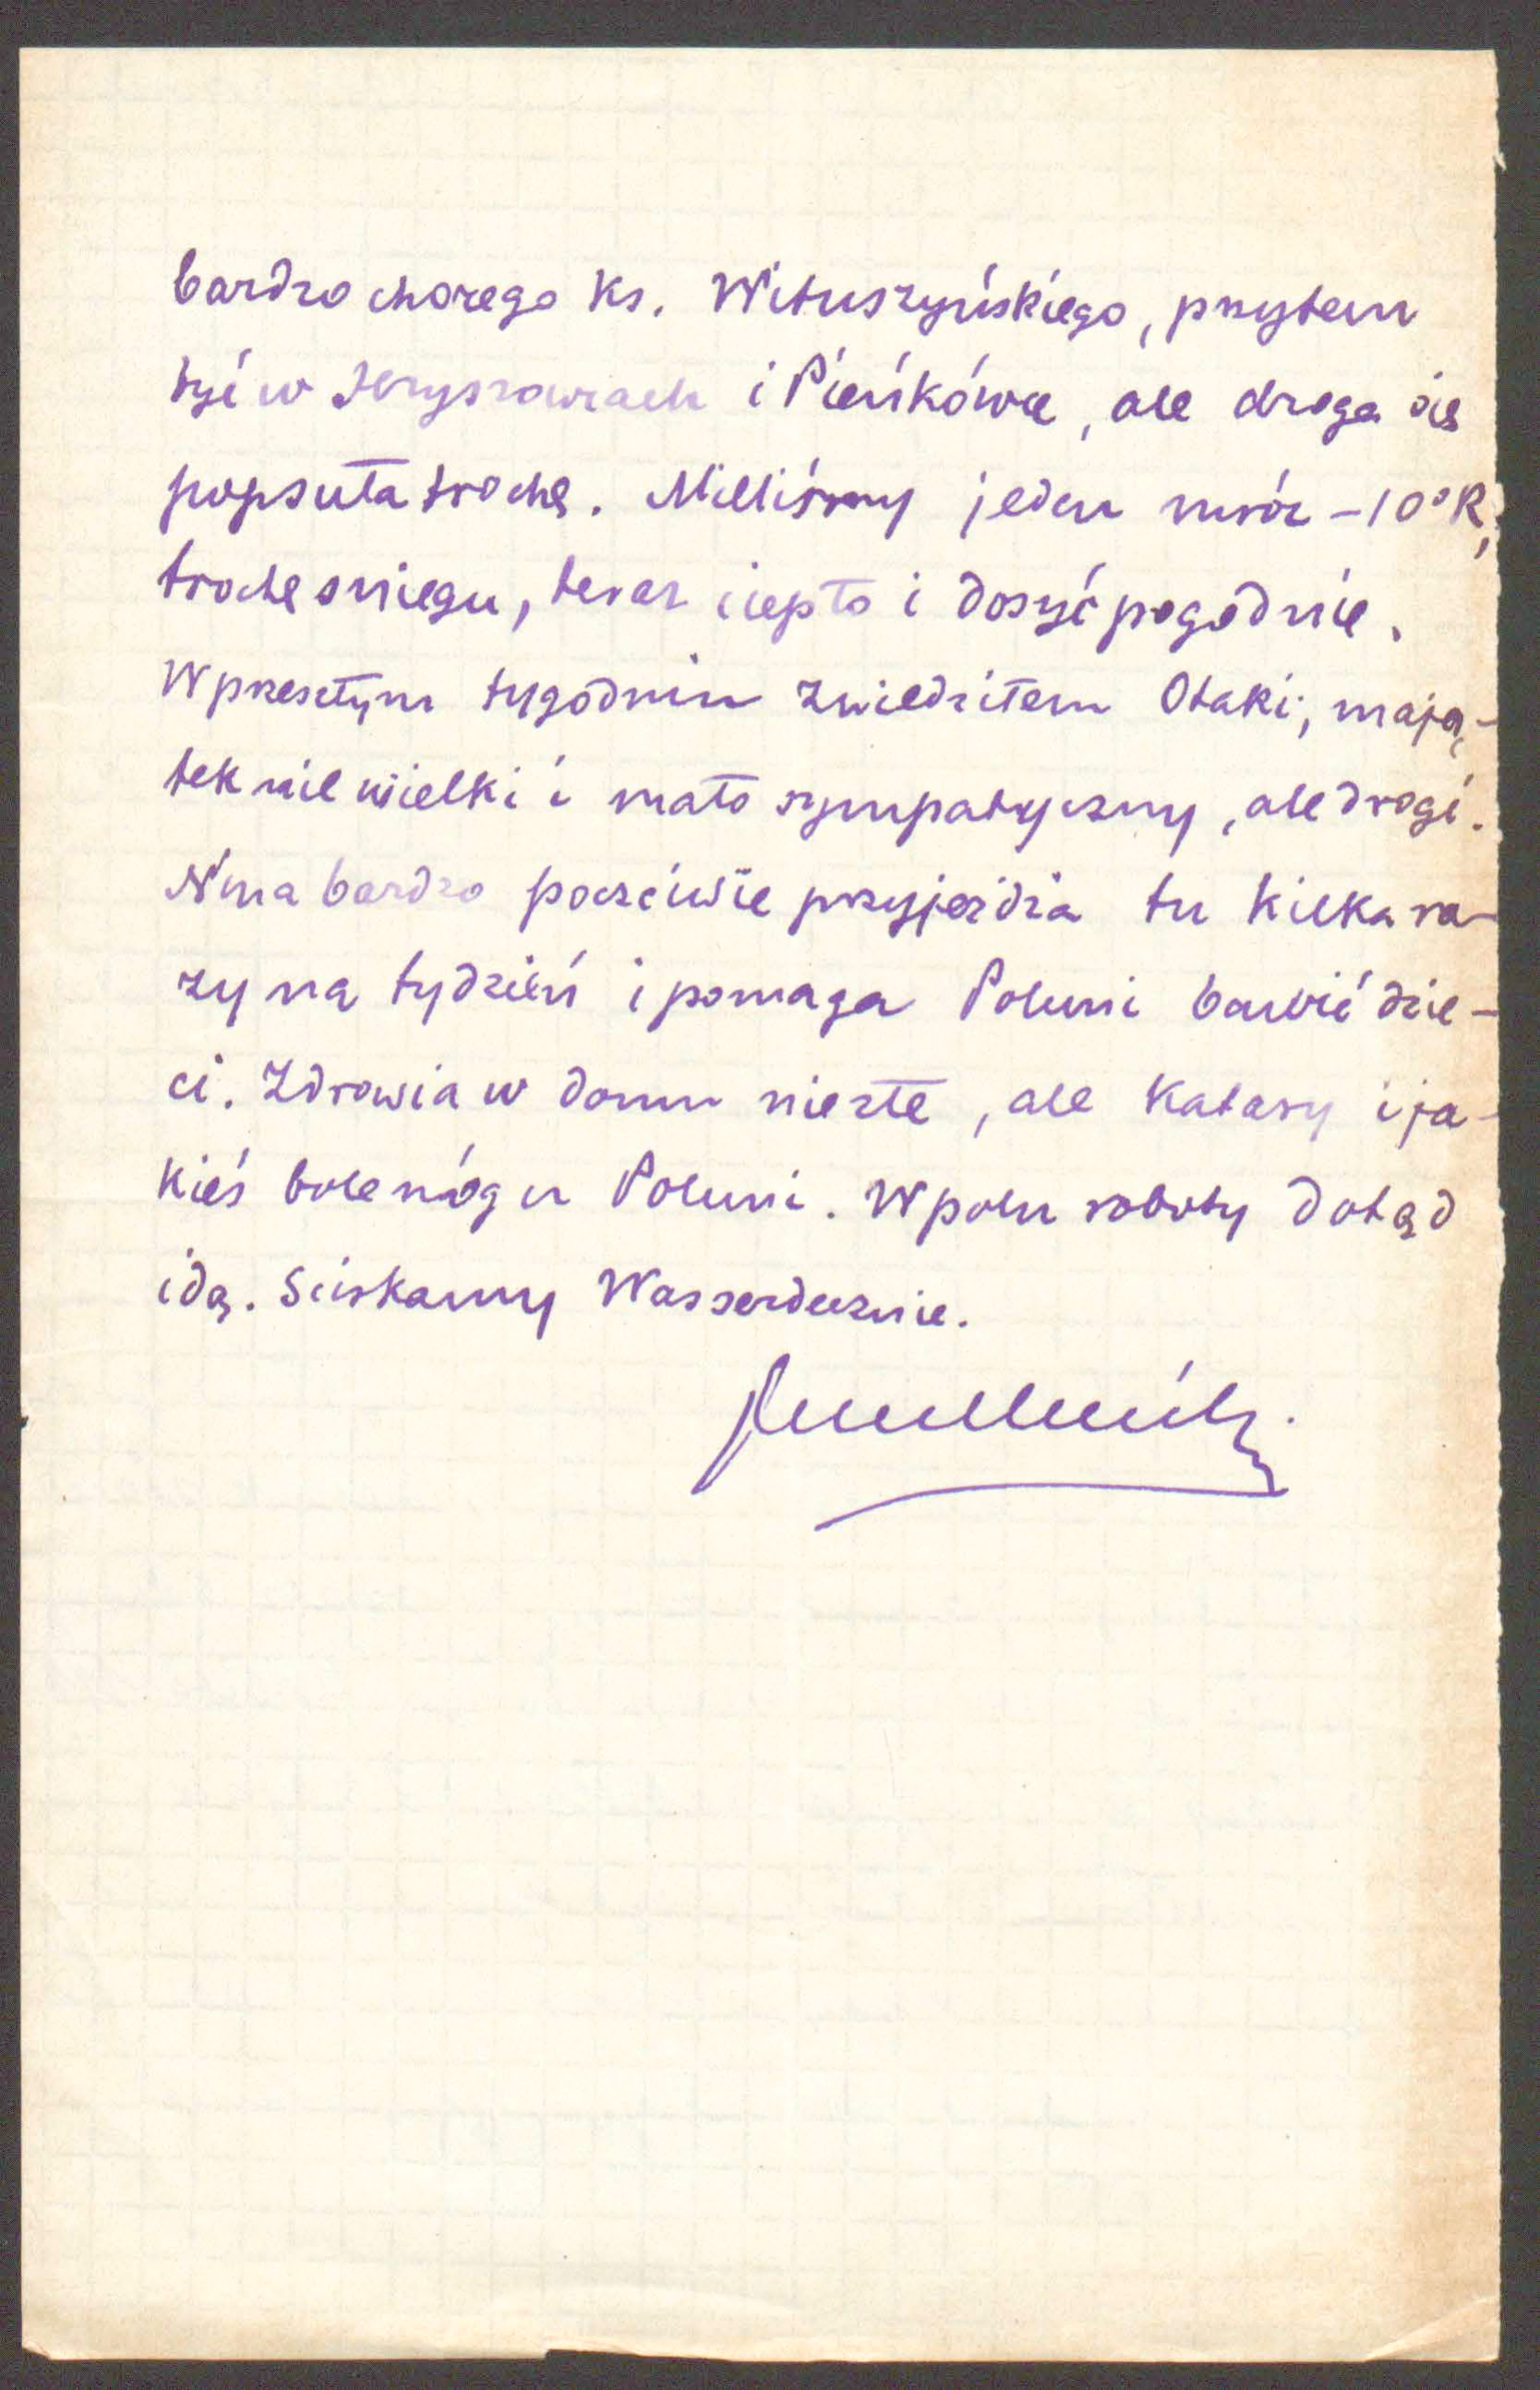 bardzo chorego ks. Wituszyńskiego, przytem
być w Jeryszowcach i Pieńkówce, ale droga się
popsuła trochę. Mieliśmy jeden mróz -10°R,
trochę sniegu, teraz ciepło i dosyć pogodnie.
W przeszłym tygodniu zwiedziłem Otaki, mają-
tek nie wielki i mało sympatyczny, ale drogi.
Nina bardzo poczciwie przyjeżdża tu kilka ra-
zy na tydzień i pomaga Poluni bawić dzie-
ci. Zdrowia w domu niezłe, ale katary i ja-
kieś bole nóg u Poluni. W polu roboty dotąd
idą. Sciskamy Was serdecznie.